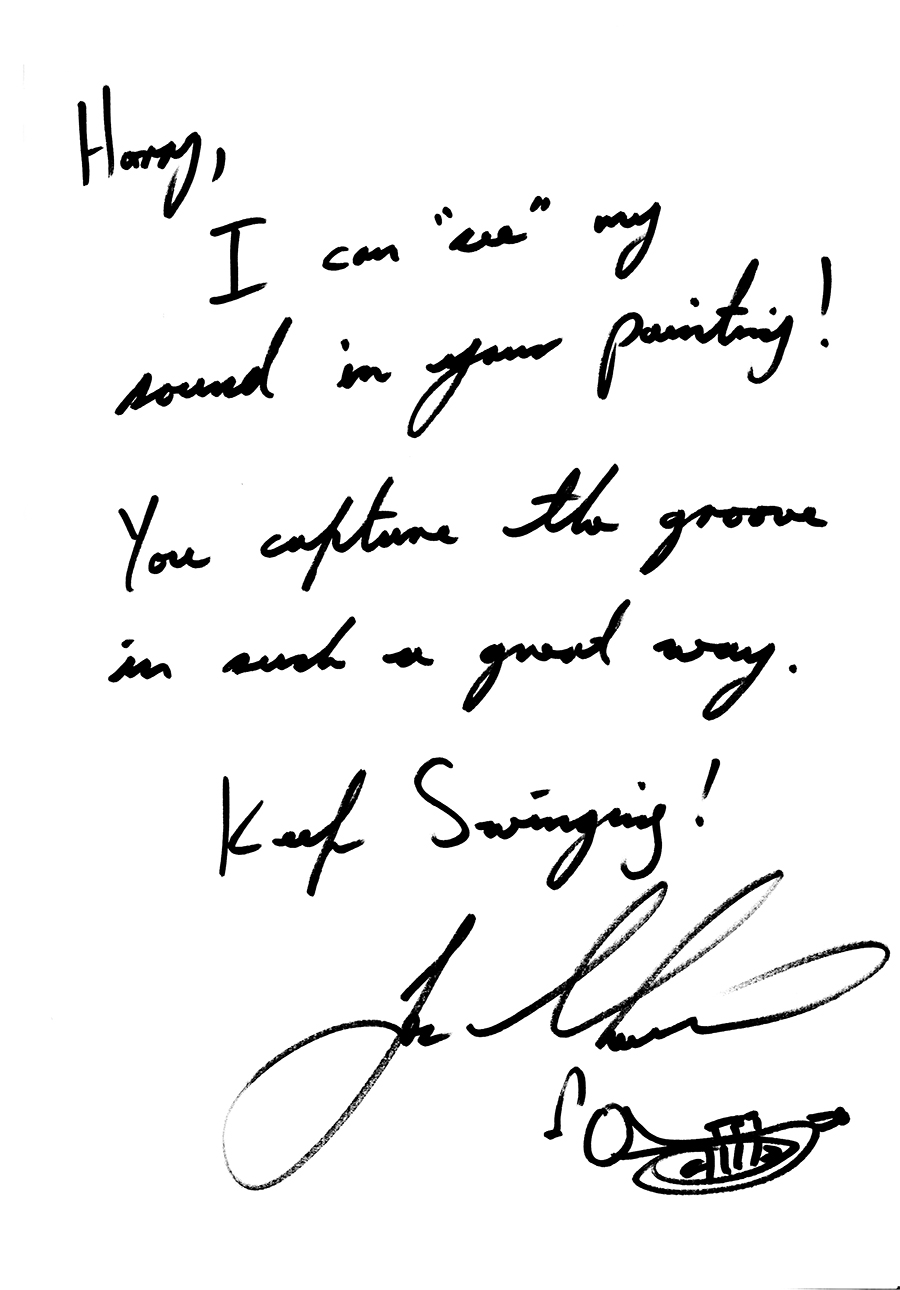 Harry,
I can "see" my
sound in your painting!
You capture the groove
in such a great way.
Keep Swinging!